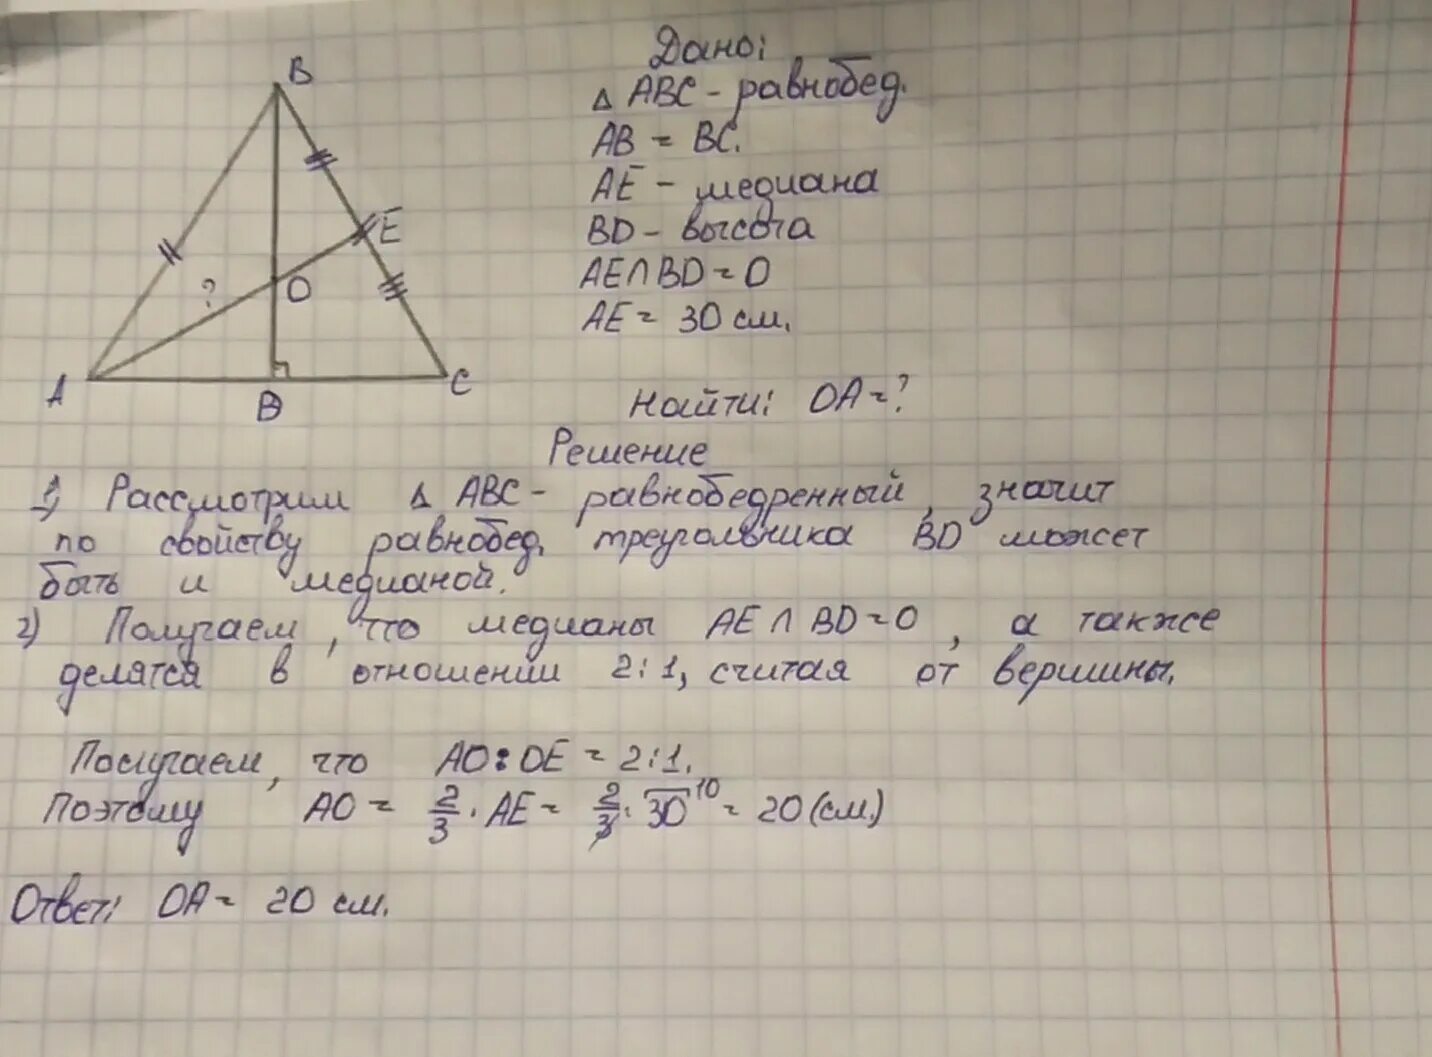 B
E
?
O
A
D
C
Дано:
△ ABC - равнобед.
AB = BC.
AE - медиана
BD - высота
AE ∩ BD = O
AE = 30 см.
Найти: OA = ?
Решение
1) Рассмотрим △ ABC - равнобедренный, значит
по свойству равнобед. треугольника BD может
быть и медианой.
2) Получаем, что медианы AE ∩ BD = O, а также
делятся в отношении 2:1, считая от вершины.
Получаем, что AO : OE = 2:1.
Поэтому AO = 2/3 · AE = 2/3 · 30 10 = 20 (см.)
Ответ: OA = 20 см.